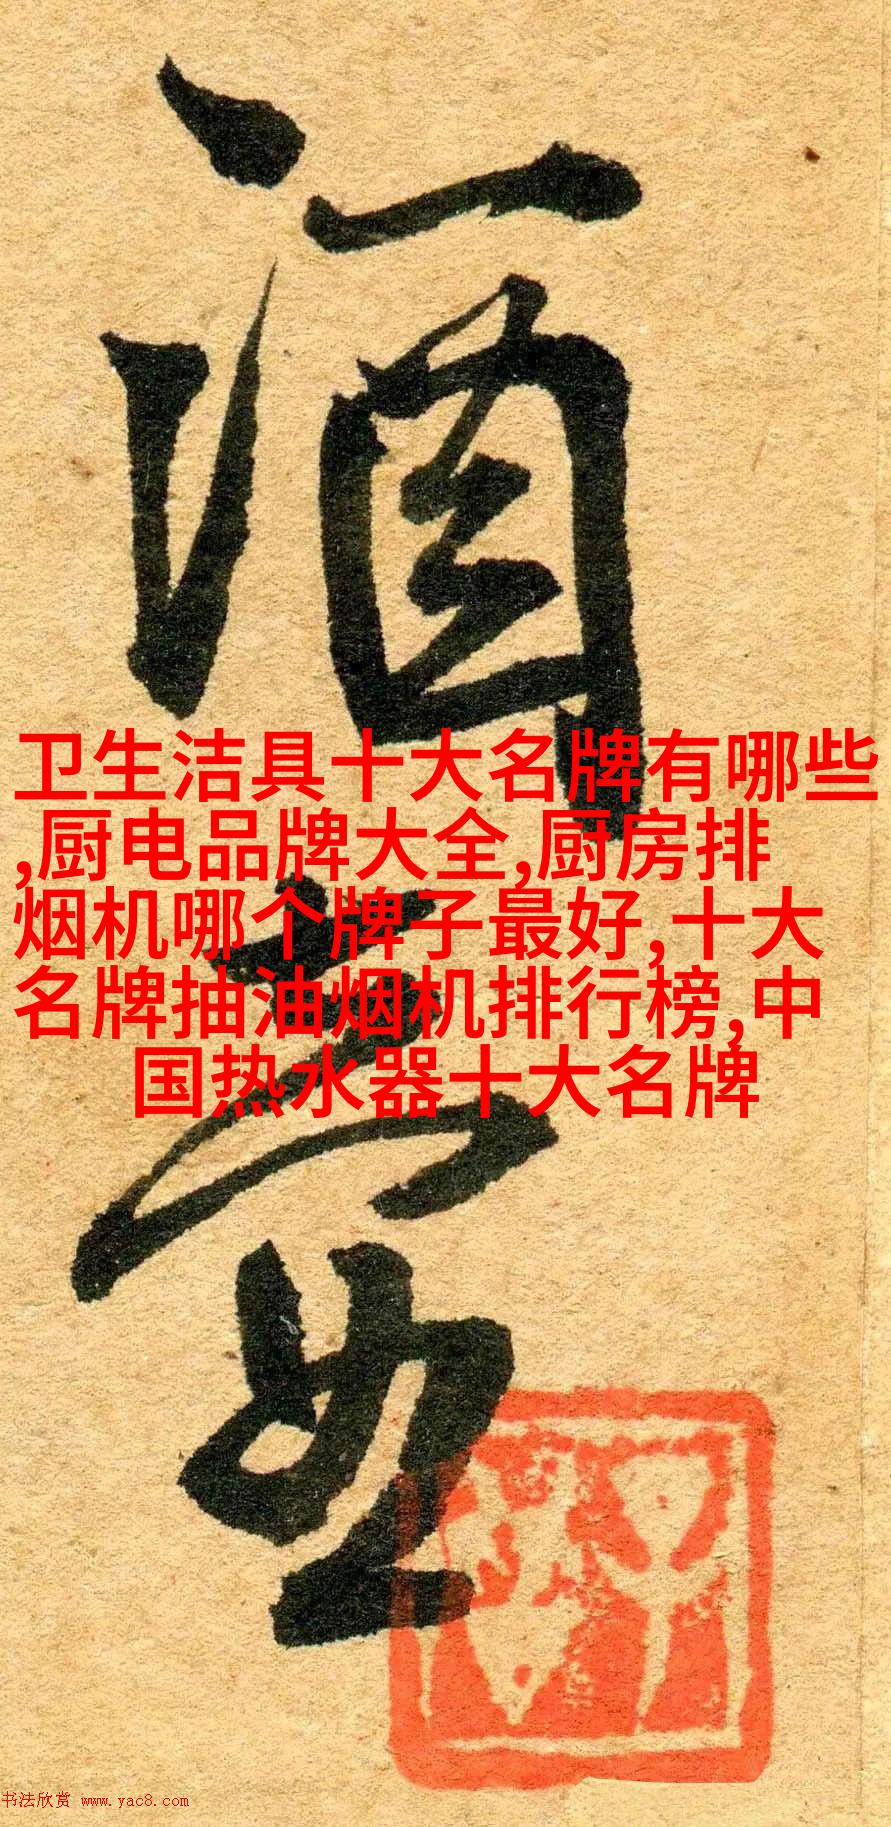 酒
卫生洁具十大名牌有哪些
,厨电品牌大全,厨房排
烟机哪个牌子最好,十大
名牌抽油烟机排行榜,中
国热水器十大名牌
书法欣赏 www.yac8.com